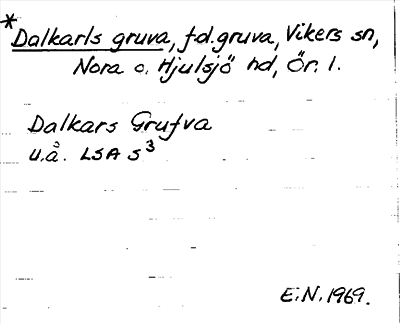 *Dalkarls gruva, f.d. gruva, Vikers sn,
Nora o. Hjulsjö hd, Ör. l.
Dalkars Grufva
u.å. LSA S³
E.N. 1969.